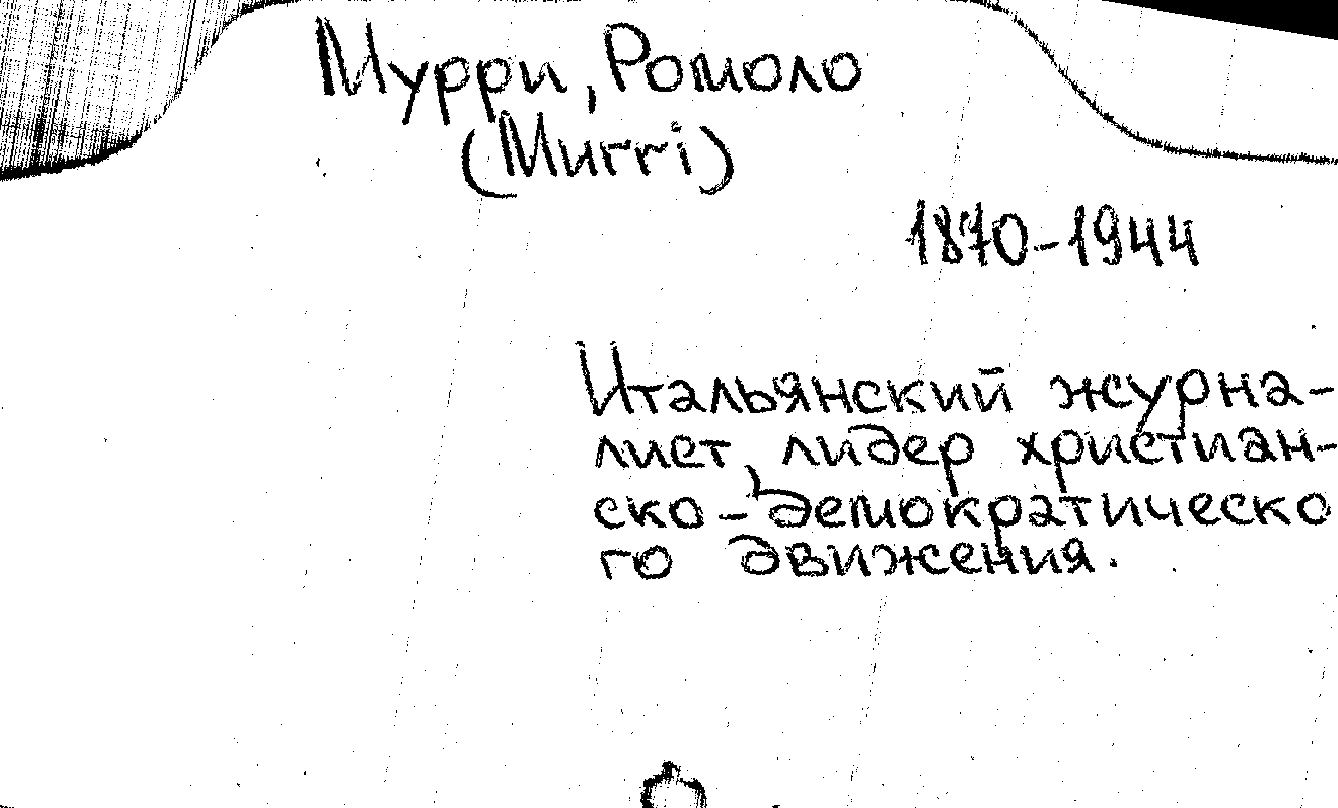 Мурри, Ромоло
(Murri)
1870-1944
Итальянский журна-
лист, лидер христиан-
ско-демократическо
го движения.